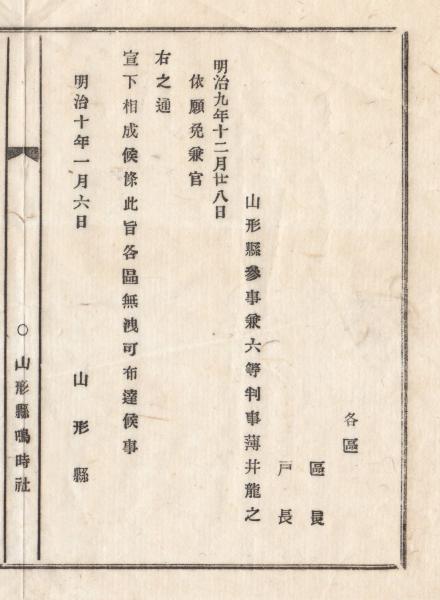 各區
區長
戸長
山形縣參事兼六等判事薄井龍之
明治九年十二月廿八日
依願免兼官
右之通
宣下相成候條此旨各區無洩可布達候事
明治十年一月六日
山形縣
○山形縣鳴時社